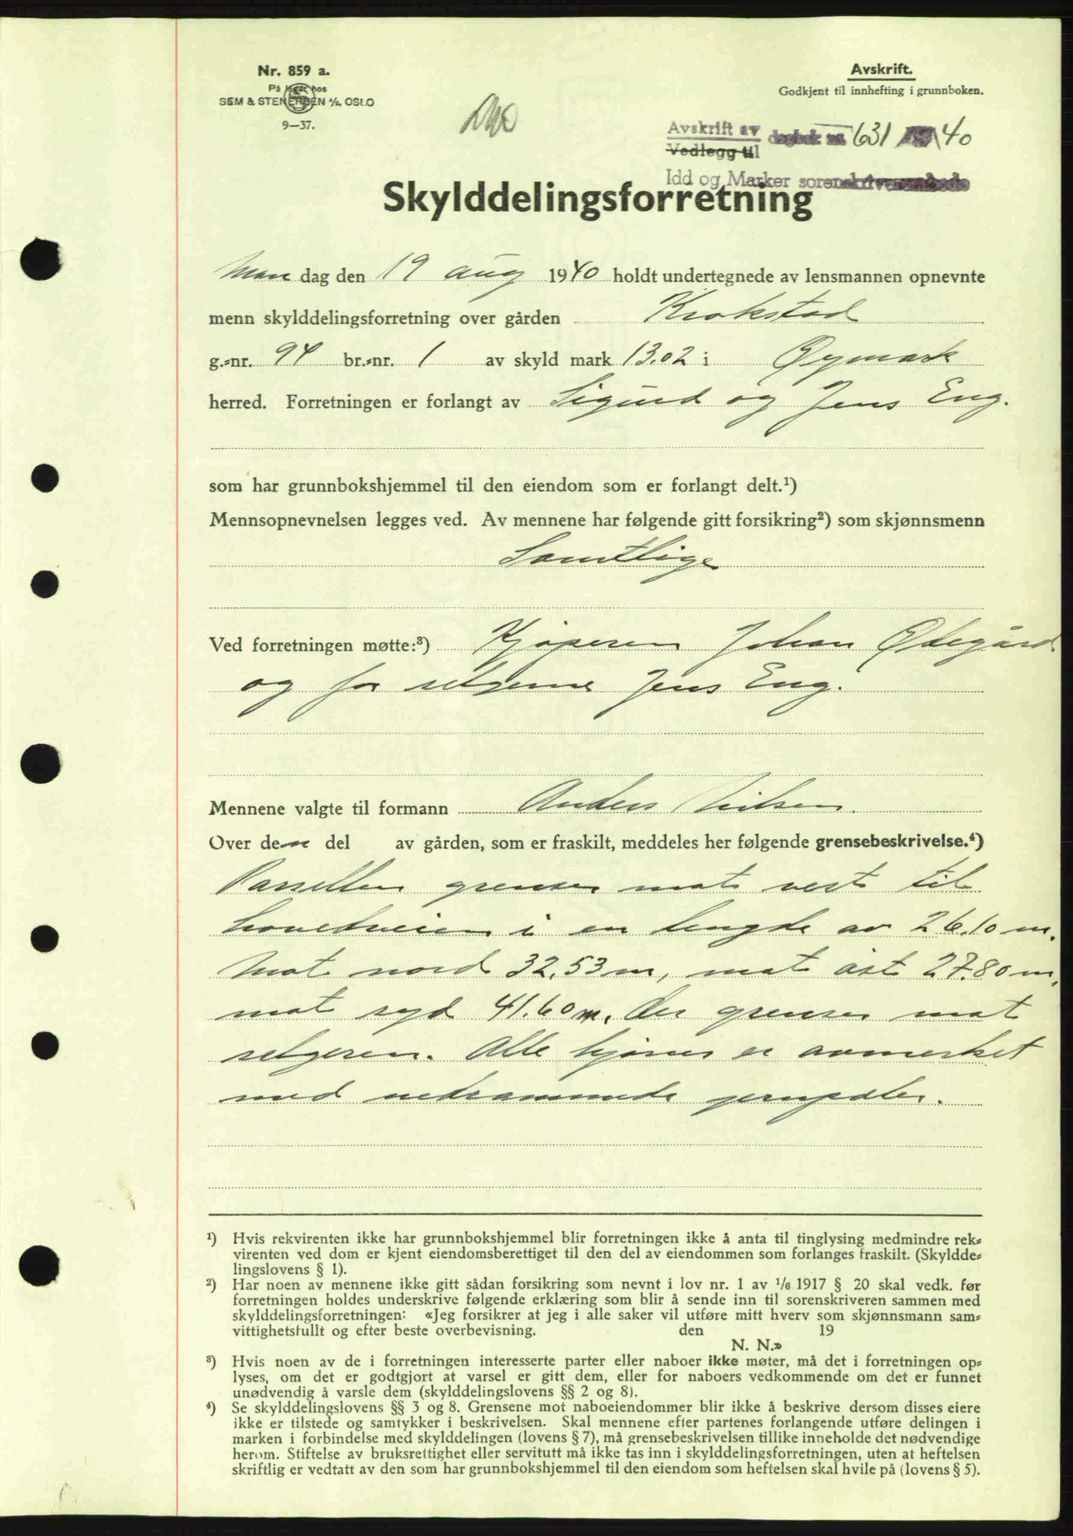 Nr. 859 a.
På lager hos
SEM & STENERSEN A/S, OSLO
9—37.
Avskrift.
Godkjent til innhefting i grunnboken.
Avskrift av dagbok nr. 631 1940
Vedlegg til
Idd og Marker sorenskriverembede
Skylddelingsforretning
Man dag den 19 aug 1940 holdt undertegnede av lensmannen opnevnte
menn skylddelingsforretning over gården Krokstad
g.-nr. 94 br.-nr. 1 av skyld mark 13.02 i Øymark
herred. Forretningen er forlangt av Sigurd og Jens Eng.
som har grunnbokshjemmel til den eiendom som er forlangt delt.¹)
Mennsopnevnelsen legges ved. Av mennene har følgende gitt forsikring²) som skjønnsmenn
Samtlige
Ved forretningen møtte:³) Kjøperen Johan Ødegård
og for selgerne Jens Eng.
Mennene valgte til formann Anders Nilsen.
Over den del av gården, som er fraskilt, meddeles her følgende grensebeskrivelse.⁴)
Parsellen grenser mot vest til
hovedveien i en lengde av 26.10 m.
Mot nord 32.53 m, mot øst 27.80 m,
mot syd 41.60 m. der grenser mot
selgeren. Alle hjørner er avmerket
med nedrammede jernpæler.
¹) Hvis rekvirenten ikke har grunnbokshjemmel blir forretningen ikke å anta til tinglysing medmindre rek-
virenten ved dom er kjent eiendomsberettiget til den del av eiendommen som forlanges fraskilt. (Skyldde-
lingslovens § 1).
²) Har noen av mennene ikke gitt sådan forsikring som nevnt i lov nr. 1 av 1/6 1917 § 20 skal vedk. før
forretningen holdes underskrive følgende erklæring som blir å sende inn til sorenskriveren sammen med
skylddelingsforretningen: «Jeg forsikrer at jeg i alle saker vil utføre mitt hverv som skjønnsmann sam-
vittighetsfullt og efter beste overbevisning. den 19
N. N.»
³) Hvis noen av de i forretningen interesserte parter eller naboer ikke møter, må det i forretningen op-
lyses, om det er godtgjort at varsel er gitt dem, eller for naboers vedkommende om det er funnet
unødvendig å varsle dem (skylddelingslovens §§ 2 og 8).
⁴) Se skylddelingslovens §§ 3 og 8. Grensene mot naboeiendommer blir ikke å beskrive dersom disses eiere
ikke er tilstede og samtykker i beskrivelsen. Skal mennene efter partenes forlangende utføre delingen i
marken i forbindelse med skylddelingen (lovens § 7), må grensebeskrivelsen tillike inneholde det nødvendige
herom. Stiftelse av bruksrettighet eller servitutt må ikke tas inn i skylddelingsforretningen, uten at heftelsen
skriftlig er vedtatt av den som har grunnbokshjemmel til den eiendom som heftelsen skal hvile på (lovens § 5).